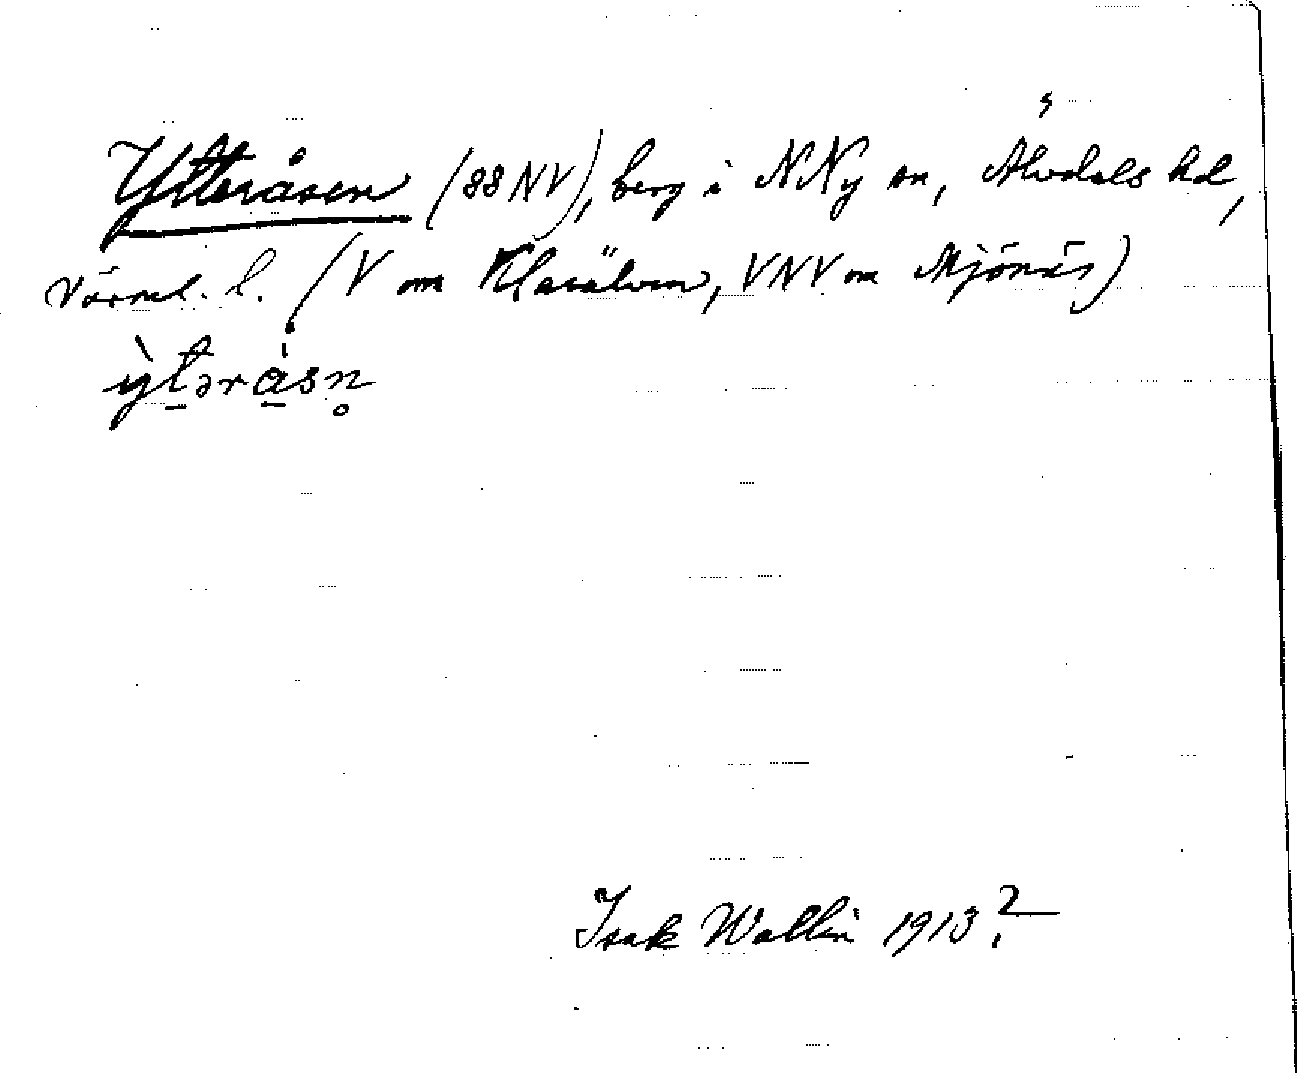 Ytteråsen (88 NV), berg i NNy sn, Älvdals hd,
Värml. l. (V om Klarälven, VNV om Mjönäs)
ỳt̠ərȧ̠̀sn̥
Isak Wallin 1913?